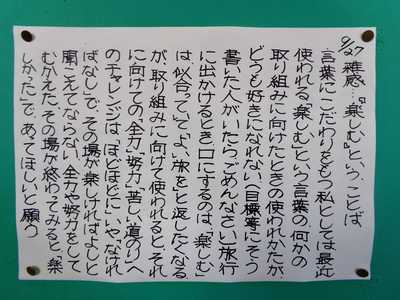 9/27 雑感…『楽しむ』ということば
言葉にこだわりをもつ私としては最近
使われる「楽しむ」という言葉の何かの
取り組みに向けたときの使われかたが、
どうも好きになれない(目標等にそう
書いた人がいたらごめんなさい)旅行
に出かけるとき口にするのは、「楽しむ」
は似合っていて、よい旅をと返したくなる
が、取り組みに向けて使われると、それ
に向けての「全力」「努力」「苦しい道のり」へ
のチャレンジは「ほどほどに」「いや、なけれ
ばなし」で、その場が楽しければよしと
聞こえてならない。全力や努力をして
むかえた、その場が終わってみると、「楽
しかった」で、あってほしいと願う